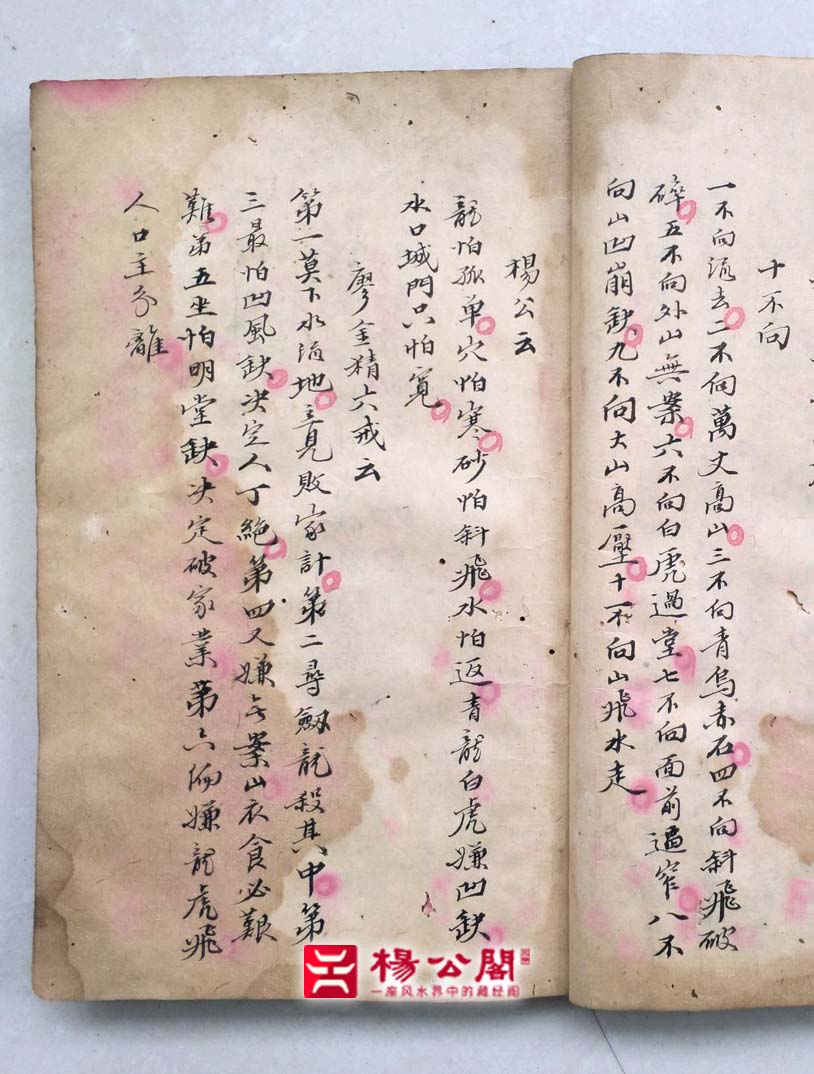 十不向
一不向流去二不向萬丈高山三不向青烏赤石四不向斜飛破
碎五不向外山無案六不向白虎過堂七不向面前逼窄八不
向山凹崩缺九不向大山高壓十不向山飛水走
楊公云
龍怕孤单穴怕寒砂怕斜飛水怕返青龍白虎嫌凹缺
水口城門只怕寬
廖金精六戒云
第一莫下水流地立見敗家計第二尋劔龍殺其中第
三最怕凹風缺决定人丁絕第四又嫌無案山衣食必艱
難第五坐怕明堂缺决定破家業第六偏嫌龍虎飛
人口主分離
楊公閣
一座风水界中的藏经阁